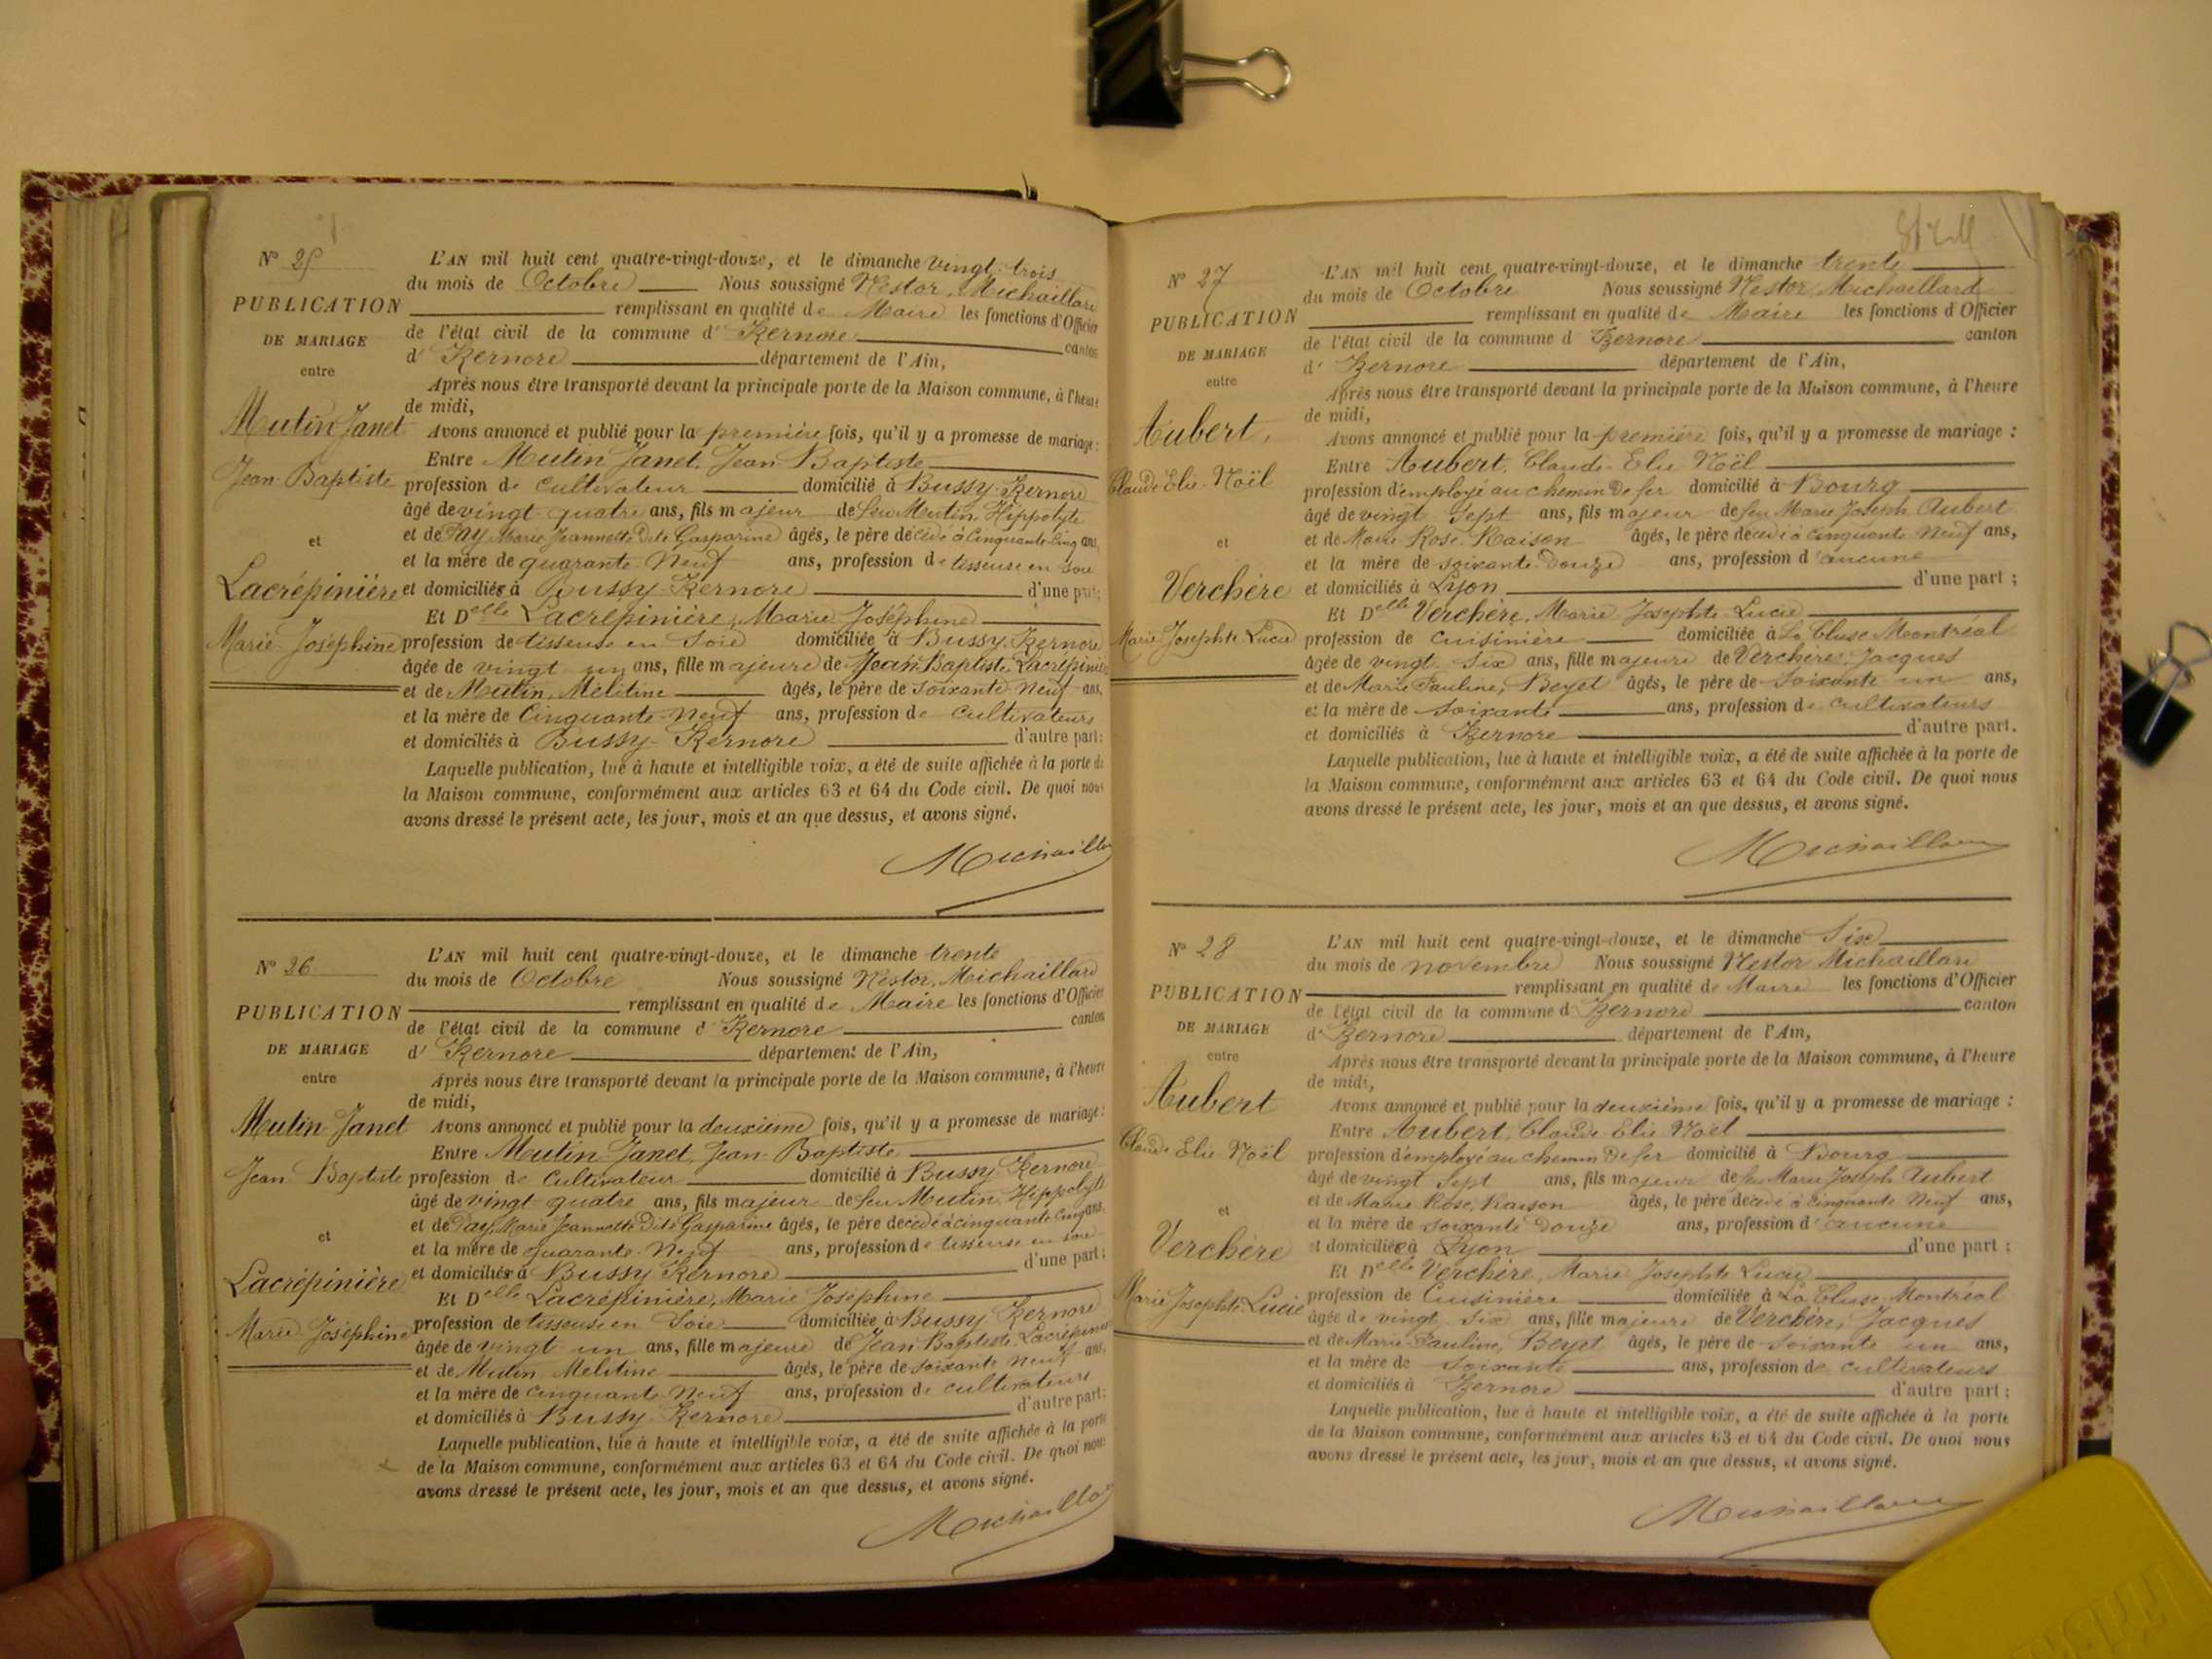 N° 25
PUBLICATION
DE MARIAGE
entre
Mutin Janet
Jean Baptiste
et
Lacrépinière
Marie Joséphine
L'AN mil huit cent quatre-vingt-douze, et le dimanche vingt trois
du mois de Octobre Nous soussigné Nestor, Michaillard
remplissant en qualité de Maire les fonctions d'Officier
de l'état civil de la commune d' Izernore canton
d' Izernore département de l'Ain,
Après nous être transporté devant la principale porte de la Maison commune, à l'heure
de midi,
Avons annoncé et publié pour la première fois, qu'il y a promesse de mariage :
Entre Mutin Janet, Jean Baptiste
profession de cultivateur domicilié à Bussy-Izernore
âgé de vingt quatre ans, fils majeur de feu Mutin, Hippolyte
et de Pay, Marie Jeannette dite Gasparine âgés, le père décédé à cinquante cinq ans,
et la mère de quarante-Neuf ans, profession de tisseuse en soie
et domiciliés à Bussy-Izernore d'une part;
Et Delle Lacrépinière, Marie Joséphine
profession de tisseuse en Soie domiciliée à Bussy-Izernore
âgée de vingt un ans, fille majeure de Jean Baptiste Lacrépinière
et de Mutin, Mélitine âgés, le père de soixante Neuf ans,
et la mère de Cinquante-Neuf ans, profession de cultivateurs
et domiciliés à Bussy-Izernore d'autre part:
Laquelle publication, lue à haute et intelligible voix, a été de suite affichée à la porte de
la Maison commune, conformément aux articles 63 et 64 du Code civil. De quoi nous
avons dressé le présent acte, les jour, mois et an que dessus, et avons signé.
Michaillard
N° 26
PUBLICATION
DE MARIAGE
entre
Mutin-Janet
Jean Baptiste
et
Lacrépinière
Marie Joséphine
L'AN mil huit cent quatre-vingt-douze, et le dimanche trente
du mois de Octobre Nous soussigné Nestor, Michaillard
remplissant en qualité de Maire les fonctions d'Officier
de l'état civil de la commune d' Izernore canton
d' Izernore département de l'Ain,
Après nous être transporté devant la principale porte de la Maison commune, à l'heure
de midi,
Avons annoncé et publié pour la deuxième fois, qu'il y a promesse de mariage:
Entre Mutin-Janet, Jean-Baptiste
profession de Cultivateur domicilié à Bussy Izernore
âgé de vingt quatre ans, fils majeur de feu Mutin Hippolyte
et de Pay, Marie Jeannette Dite Gasparine âgés, le père décédé à cinquante cinq ans,
et la mère de quarante-Neuf ans, profession de tisseuse en soie
et domiciliés à Bussy Izernore d'une part;
Et Delle Lacrépinière, Marie Joséphine
profession de tisseuse en Soie domiciliée à Bussy Izernore
âgée de vingt un ans, fille majeure de Jean Baptiste Lacrépinière
et de Mutin Mélitine âgés, le père de soixante neuf ans,
et la mère de cinquante-Neuf ans, profession de cultivateurs
et domiciliés à Bussy-Izernore d'autre part:
Laquelle publication, lue à haute et intelligible voix, a été de suite affichée à la porte
de la Maison commune, conformément aux articles 63 et 64 du Code civil. De quoi nous
avons dressé le présent acte, les jour, mois et an que dessus, et avons signé.
Michaillard
N° 27
PUBLICATION
DE MARIAGE
entre
Aubert,
Claude Elie-Noël
et
Verchère
Marie Josephte Lucie
L'AN mil huit cent quatre-vingt-douze, et le dimanche trente
du mois de Octobre Nous soussigné Nestor, Michaillard
remplissant en qualité de Maire les fonctions d'Officier
de l'état civil de la commune d Izernore canton
d' Izernore département de l'Ain,
Après nous être transporté devant la principale porte de la Maison commune, à l'heure
de midi,
Avons annoncé et publié pour la première fois, qu'il y a promesse de mariage :
Entre Aubert, Claude-Elie Noël
profession d'employé au chemin de fer domicilié à Bourg
âgé de vingt Sept ans, fils majeur de feu Marie Joseph Aubert
et de Marie Rose Raison âgés, le père décédé à cinquante Neuf ans,
et la mère de soixante-Douze ans, profession d'aucune
et domiciliés à Lyon d'une part ;
Et Delle Verchère, Marie Josephte Lucie
profession de cuisinière domiciliée à La Cluse Montréal
âgée de vingt Six ans, fille majeure de Verchère Jacques
et de Marie Pauline, Beyet âgés, le père de soixante un ans,
et la mère de soixante ans, profession de cultivateurs
et domiciliés à Izernore d'autre part.
Laquelle publication, lue à haute et intelligible voix, a été de suite affichée à la porte de
la Maison commune, conformément aux articles 63 et 64 du Code civil. De quoi nous
avons dressé le présent acte, les jour, mois et an que dessus, et avons signé.
Michaillard
N° 28
PUBLICATION
DE MARIAGE
entre
Aubert
Claude Elie Noël
et
Verchère
Marie Josephte Lucie
L'AN mil huit cent quatre-vingt-douze, et le dimanche Six
du mois de novembre Nous soussigné Nestor Michaillard
remplissant en qualité de Maire les fonctions d'Officier
de l'état civil de la commune d Izernore canton
d' Izernore département de l'Ain,
Après nous être transporté devant la principale porte de la Maison commune, à l'heure
de midi,
Avons annoncé et publié pour la deuxième fois, qu'il y a promesse de mariage :
Entre Aubert, Claude Elie Noël
profession d'employé au chemin de fer domicilié à Bourg
âgé de vingt Sept ans, fils majeur de feu Marie Joseph Aubert
et de Marie Rose, Raison âgés, le père décédé à cinquante Neuf ans,
et la mère de soixante Douze ans, profession d'aucune
et domiciliée à Lyon d'une part ;
Et Delle Verchère, Marie Josephte Lucie
profession de Cuisinière domiciliée à La Cluse Montréal
âgée de vingt Six ans, fille majeure de Verchère, Jacques
et de Marie Pauline, Beyet âgés, le père de soixante un ans,
et la mère de soixante ans, profession de cultivateurs
et domiciliés à Izernore d'autre part :
Laquelle publication, lue à haute et intelligible voix, a été de suite affichée à la porte
de la Maison commune, conformément aux articles 63 et 64 du Code civil. De quoi nous
avons dressé le présent acte, les jour, mois et an que dessus, et avons signé.
Michaillard